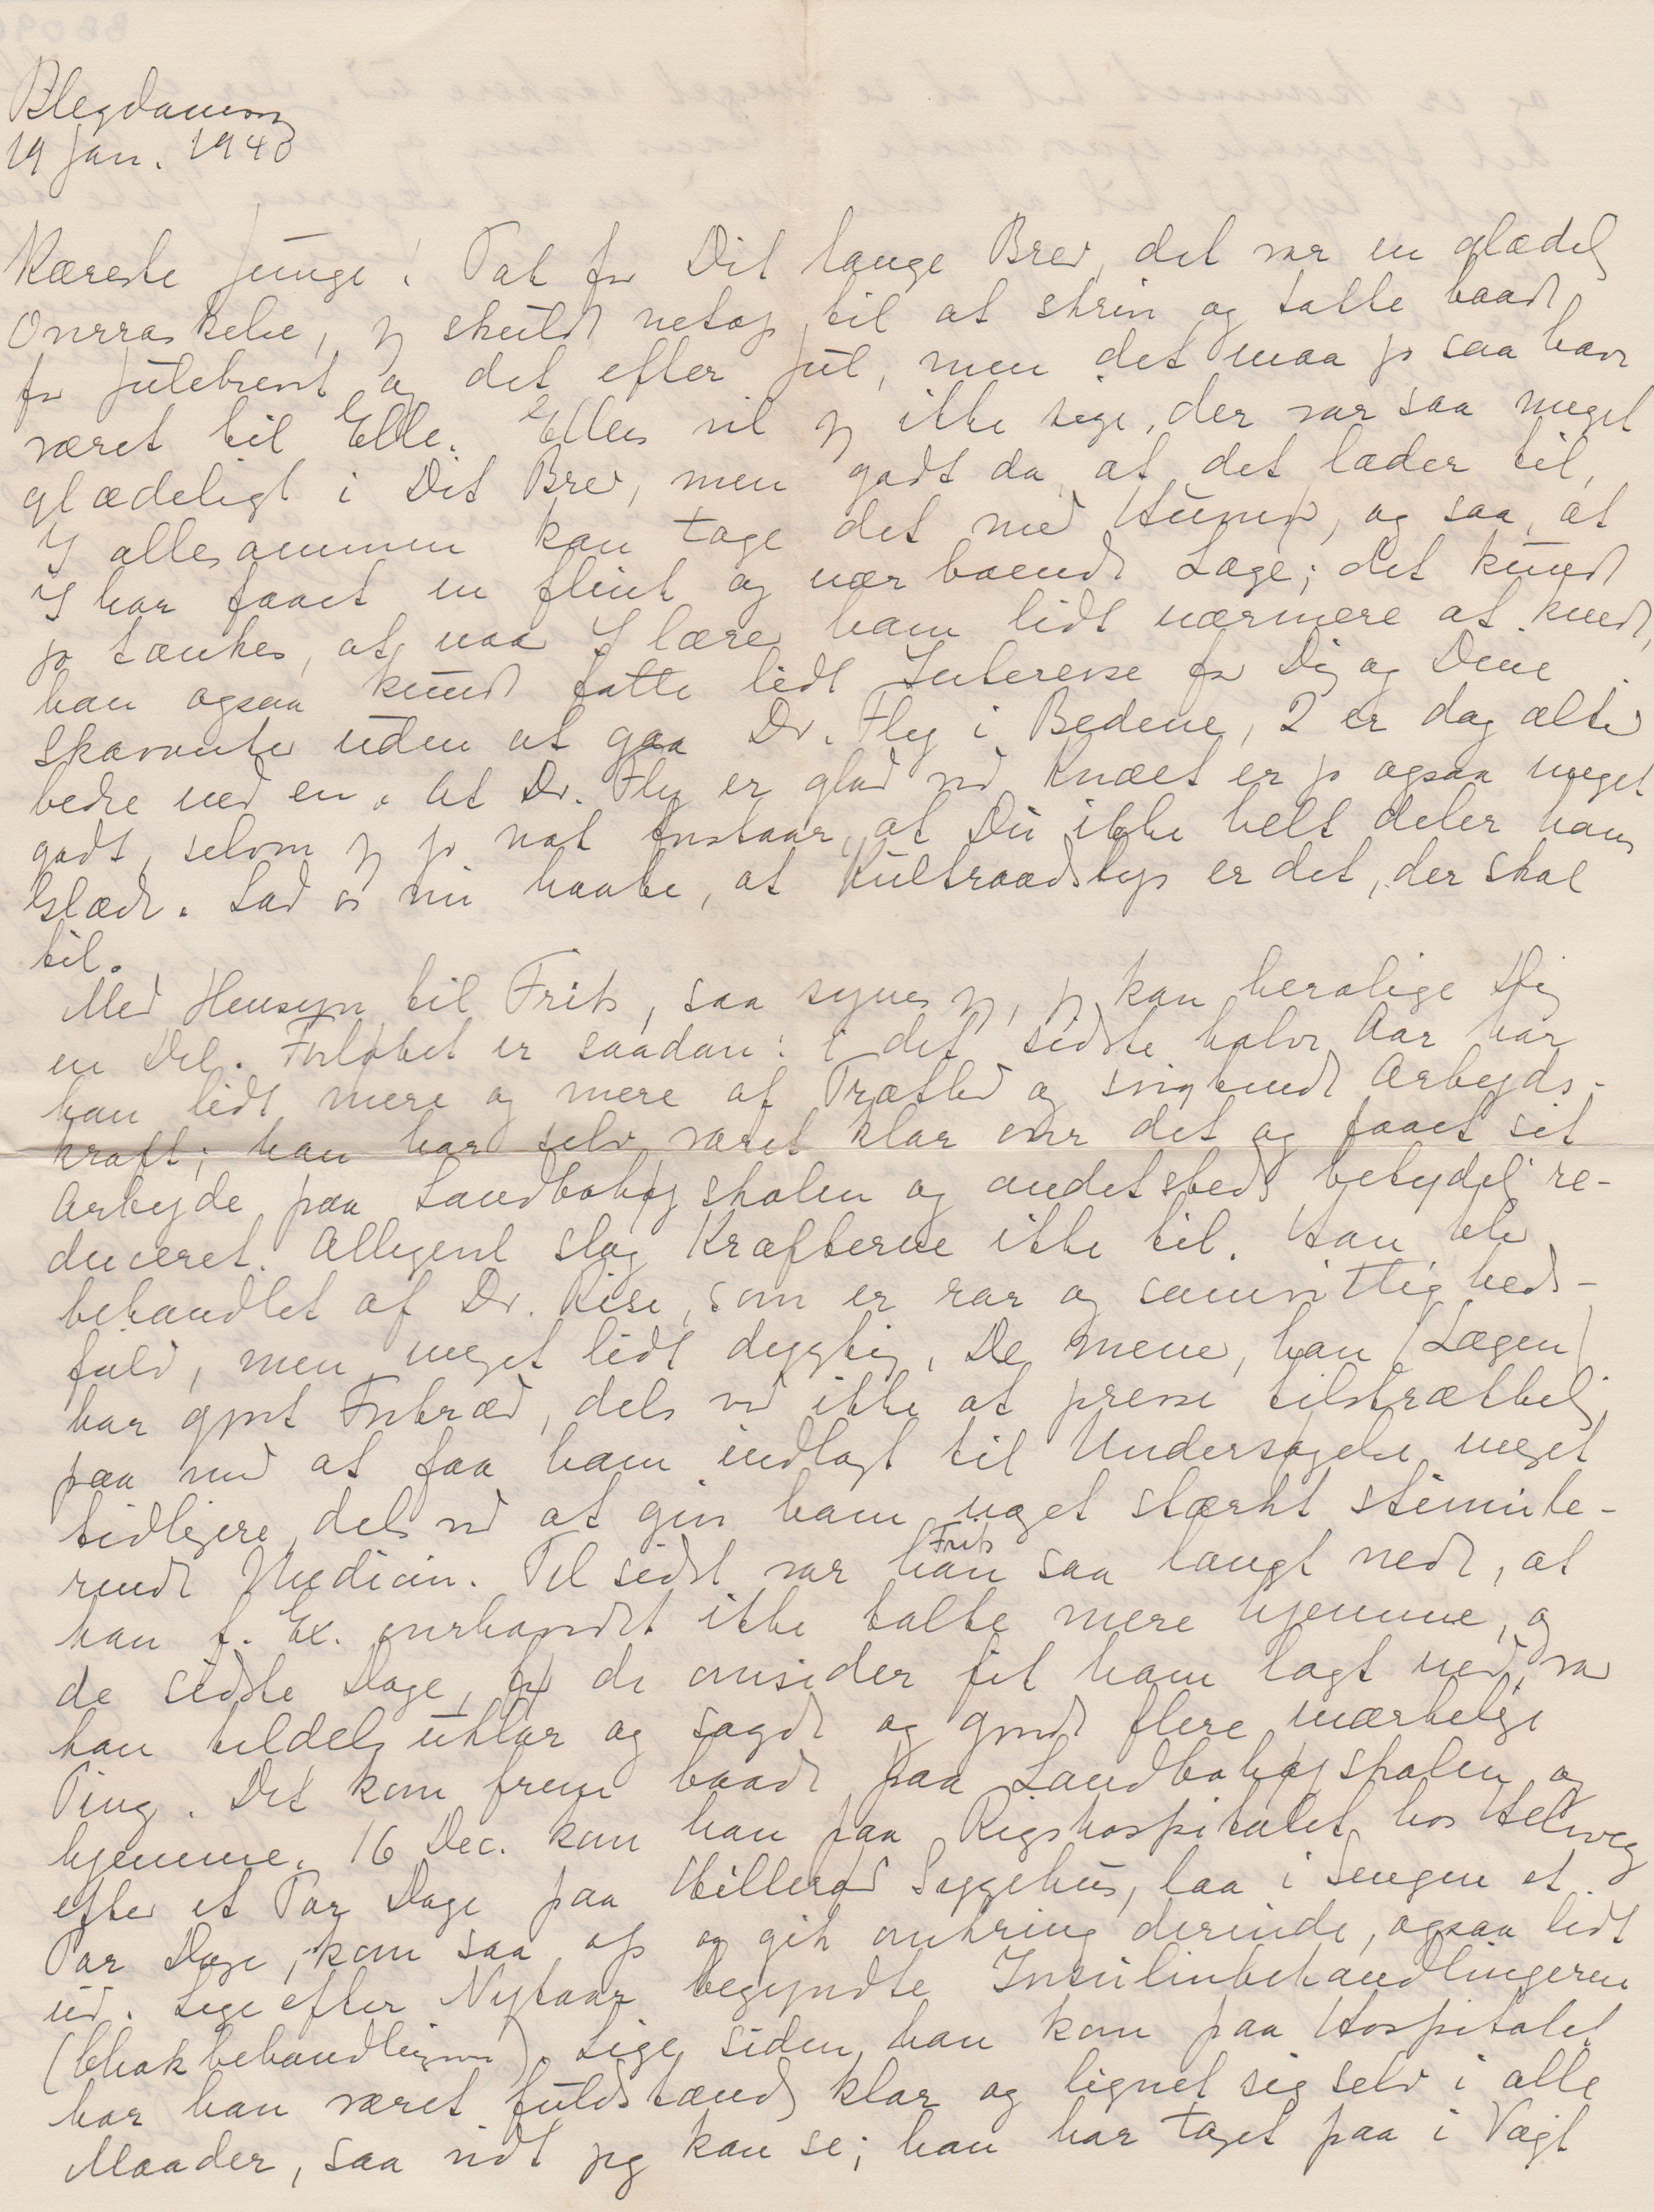 Blegdammen
19 Jan. 1940
Kæreste Junge! Tak for Dit lange Brev, det var en glædelig
Overraskelse, jeg skulde netop til at skrive og takke baade
for Julebrevet og det efter Jul, men det maa jo saa have
været til Elle. Ellers vil jeg ikke sige, der var saa meget
glædeligt i Dit Brev, men godt da at det lader til,
I allesammen kan tage det med Humør, og saa, at
I har faaet en flink og nær boende Læge; det kunde
jo tænkes, at naar I lærer ham lidt nærmere at kende,
han ogsaa kunde fatte lidt Interesse for Dig og Dine
Skavanker uden at gaa Dr. Fly i Bedene, 2 er dog altid
bedre end en. At Dr. Fly er glad ved Knæet er jo ogsaa meget
godt, selvom jeg jo nok forstaar, at Du ikke helt deler hans
Glæde. Lad os nu haabe, at Kultraadslys er det, der skal
til.
Med Hensyn til Frits, saa synes jeg, jeg kan berolige Dig
en Del. Forløbet er saadan: i det sidste halve Aar har
han lidt mere og mere af Træthed og svigtende Arbejds-
kraft; han har selv været klar over det og faaet sit
Arbejde paa Landbohøjskolen og andetsteds betydelig re-
duceret. Alligevel slog Kræfterne ikke til. Han blev
behandlet af Dr. Rise, som er rar og samvittigheds-
fuld, men meget lidt dygtig. De mener, han (Lægen)
har gjort Fortræd, dels ved ikke at presse tilstrækkelig
paa med at faa ham indlagt til Undersøgelse meget
tidligere, dels ved at give ham noget stærkt stimule-
rende Medicin. Til sidst var han Frits saa langt nede, at
han f. Ex. overhovedet ikke talte mere hjemme, og
de sidste Dage, før de omsider fik ham lagt ned, var
han tildels uklar og sagde og gjorde flere mærkelige
Ting. Det kom frem baade paa Landbohøjskolen og
hjemme. 16 Dec. kom han paa Rigshospitalet hos Helweg
efter et Par Dage paa Hillerød Sygehus, laa i Sengen et
Par Dage, kom saa op og gik omkring derinde, ogsaa lidt
ud. Lige efter Nytaar begyndte Insulinbehandlingerne
(Chokbehandlingerne). Lige siden han kom paa Hospitalet
har han været fuldstændig klar og lignet sig selv i alle
Maader, saa vidt jeg kan se; han har taget paa i Vægt